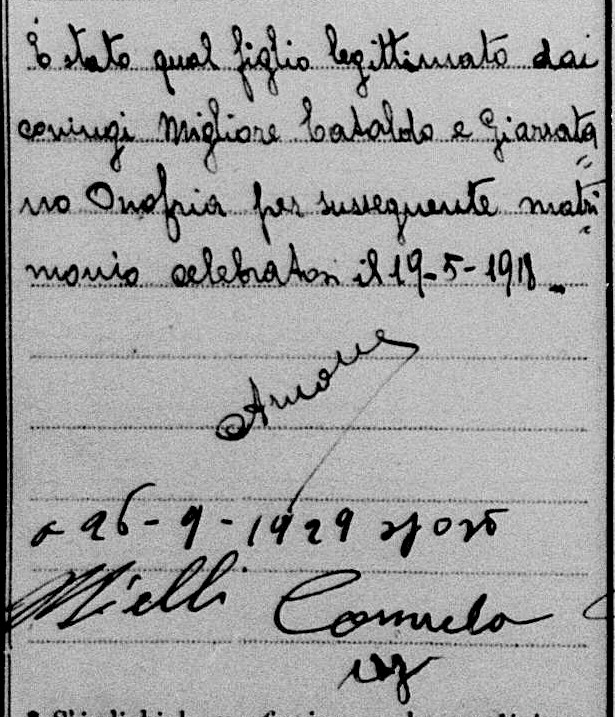 È stato qual figlio legittimato dai
coniugi Migliore Cataldo e Giarrata
no Onofria per susseguente matri
monio celebratosi il 19-5-1918
a 26-9-1929 sposò
Carmela